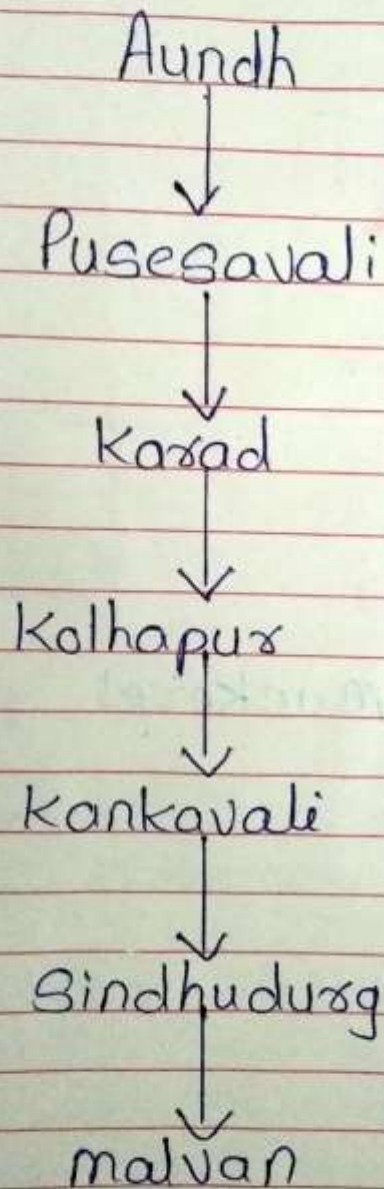 Aundh
Pusesavali
Karad
Kolhapur
Kankavali
Sindhudurg
malvan